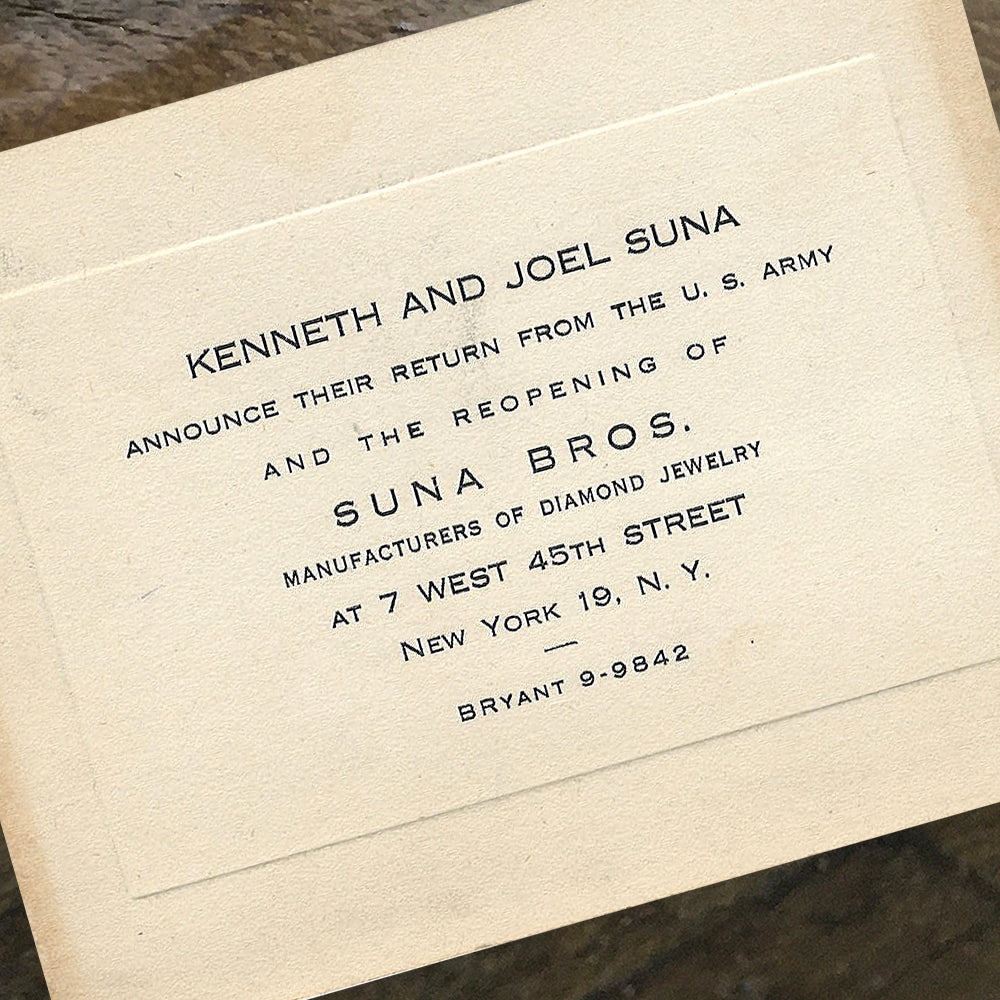 KENNETH AND JOEL SUNA
ANNOUNCE THEIR RETURN FROM THE U. S. ARMY
AND THE REOPENING OF
SUNA BROS.
MANUFACTURERS OF DIAMOND JEWELRY
AT 7 WEST 45TH STREET
NEW YORK 19, N. Y.
BRYANT 9-9842